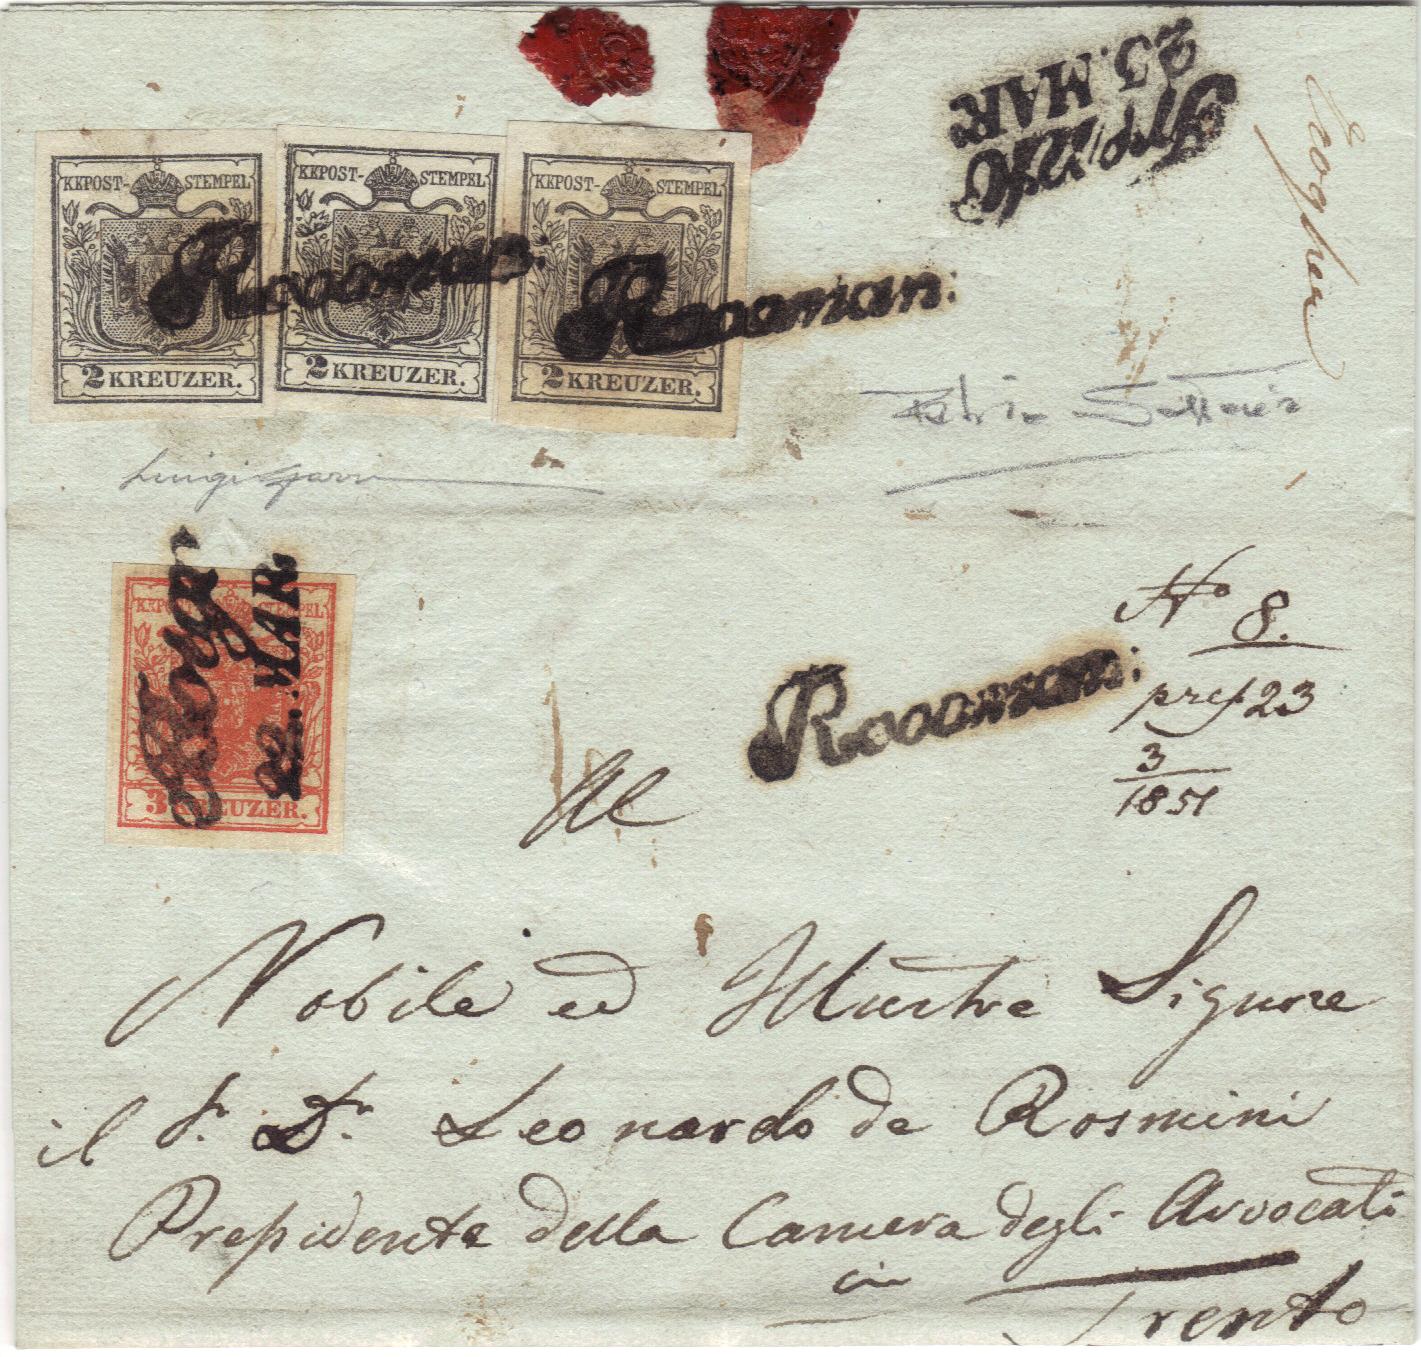 23. MAR:
KKPOST-STEMPEL
2 KREUZER.
KKPOST-STEMPEL
2 KREUZER.
KKPOST-STEMPEL
2 KREUZER.
Recoman:
Recoman:
Luigi
KKPOST-STEMPEL
3 KREUZER.
22. MAR.
Recoman:
No 8.
pres 23
3
1851
Al
Nobile ed Illustre Signore
il Sr. Dr. Leonardo de Rosmini
Presidente della Camera degli Avvocati
in
Trento